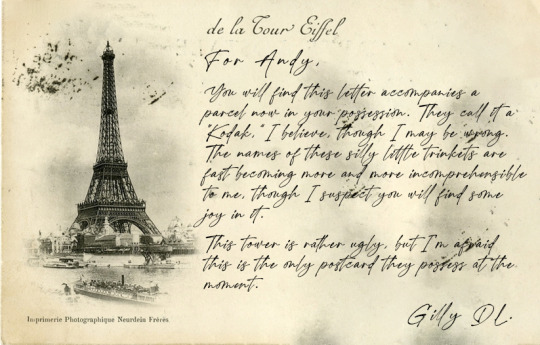 de la Tour Eiffel
For Andy,
You will find this letter accompanies a
parcel now in your possession. They call it a
"Kodak," I believe, though I may be wrong.
The names of these silly little trinkets are
fast becoming more and more incomprehensible
to me, though I suspect you will find some
joy in it.
This tower is rather ugly, but I'm afraid
this is the only postcard they possess at the
moment.
Gilly D.L.
Imprimerie Photographique Neurdein Frères